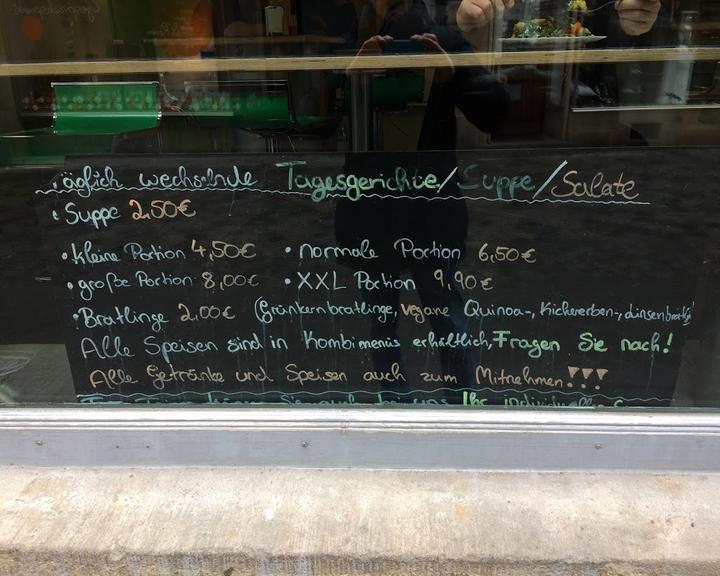 täglich wechselnde Tagesgerichte/Suppe/Salate
• Suppe 2,50€
• kleine Portion 4,50€ • normale Portion 6,50€
• große Portion 8,00€ • XXL Portion 9,90€
• Bratlinge 2,00€ (Grünkernbratlinge, vegane Quinoa-, Kichererbsen-, Linsenbratlinge)
Alle Speisen sind in Kombimenüs erhältlich, Fragen Sie nach!
Alle Getränke und Speisen auch zum Mitnehmen!!!
Sie auch bei uns Ihr